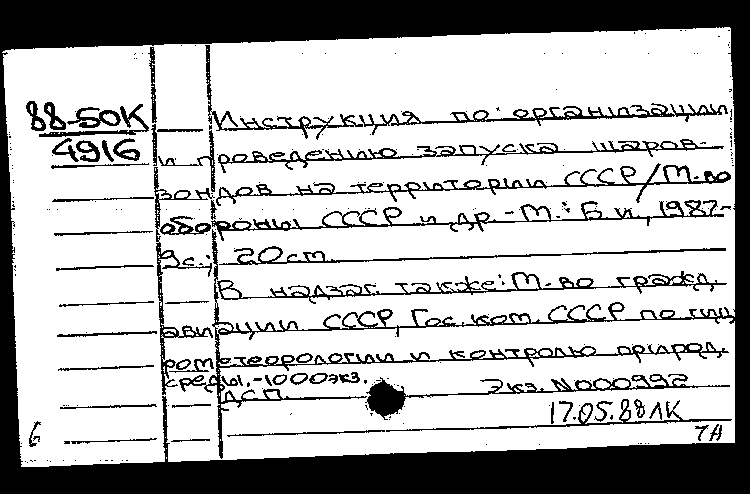 88-50К
4916
Инструкция по организации
и проведению запуска шаров-
зондов на территории СССР/М-во
обороны СССР и др.-М.: Б.и., 1987.-
9с.; 20см.
В надзаг. также: М-во гражд.
авиации СССР, Гос. ком. СССР по гид
рометеорологии и контролю природ.
среды.-1000экз.
ДСП. Экз. N000992
17.05.88 ЛК
6 7А